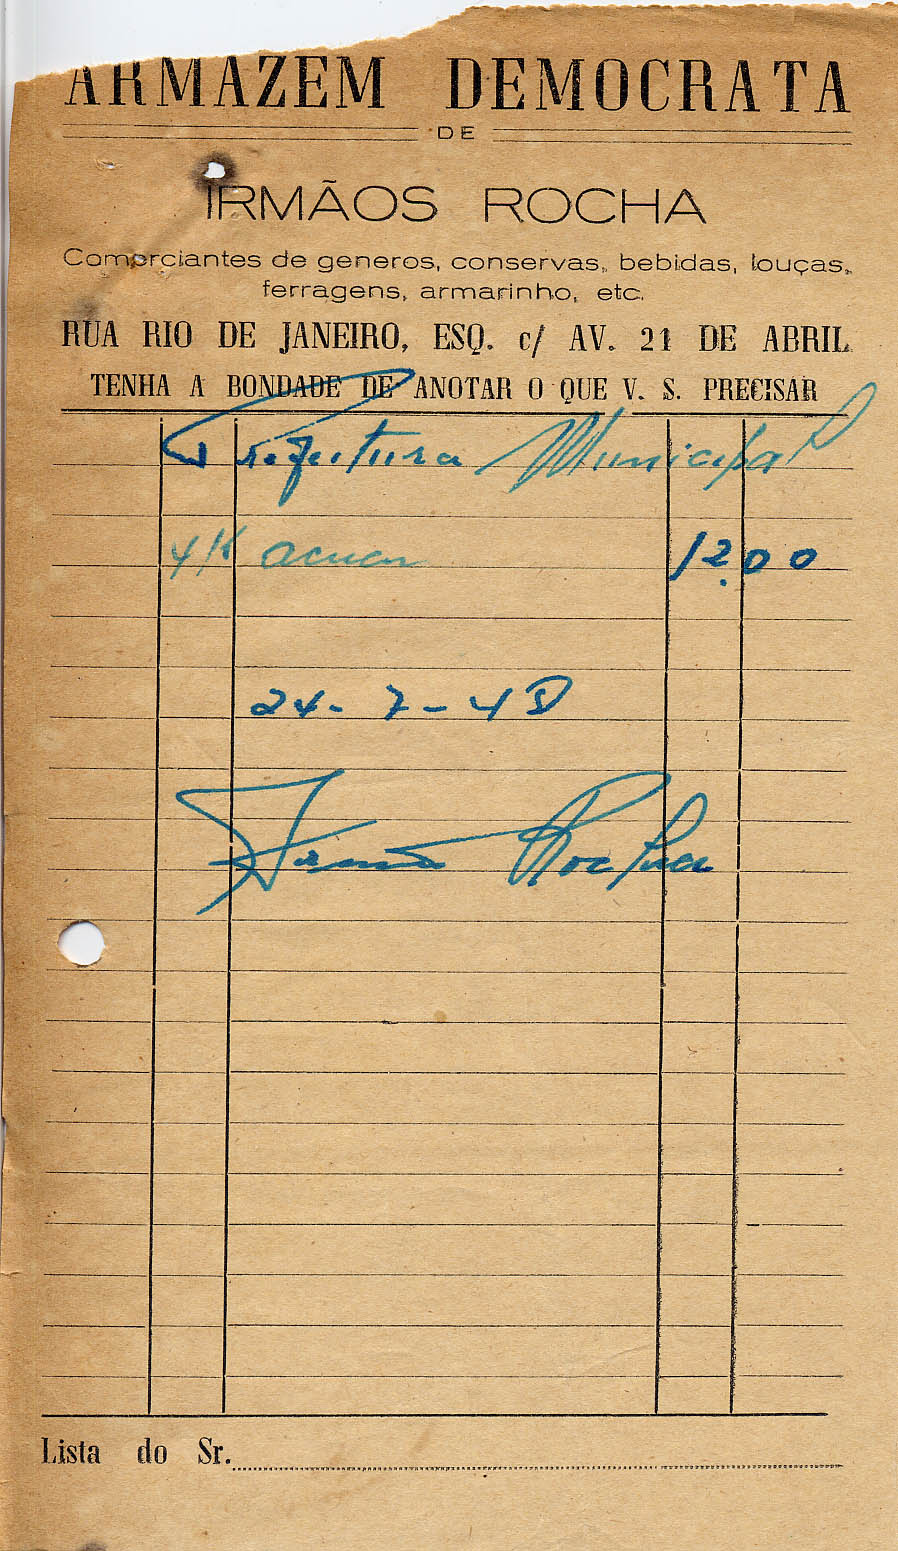 ARMAZEM DEMOCRATA
DE
IRMÃOS ROCHA
Comerciantes de generos, conservas, bebidas, louças,
ferragens, armarinho, etc.
RUA RIO DE JANEIRO, ESQ. c/ AV. 21 DE ABRIL
TENHA A BONDADE DE ANOTAR O QUE V. S. PRECISAR
Prefeitura Municipal
4 K acucar 12.00
24-7-
Rocha
Lista do Sr.